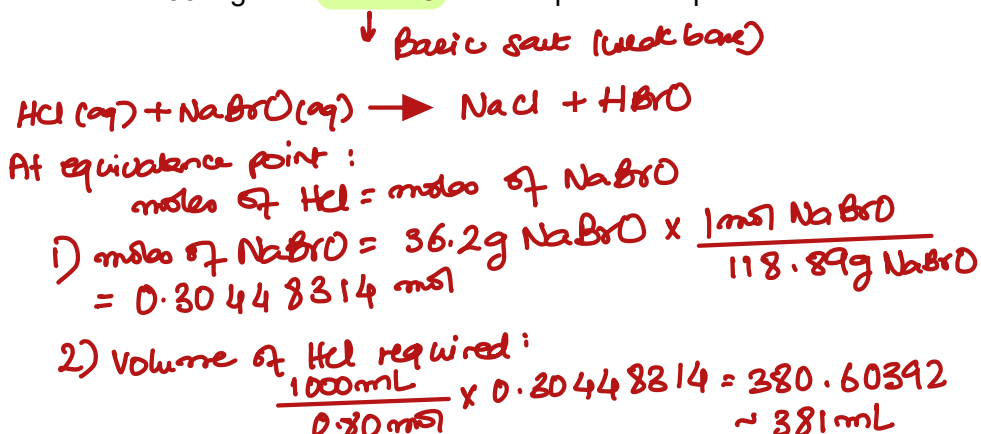 ↓ Basic salt (weak base)
HCl (aq) + NaBrO(aq) → NaCl + HBrO
At equivalence point :
moles of HCl = moles of NaBrO
1) moles of NaBrO = 36.2g NaBrO x 1mol NaBrO / 118.89g NaBrO
= 0.30448314 mol
2) Volume of HCl required :
1000mL / 0.80 mol x 0.30448314 = 380.60392
~ 381mL